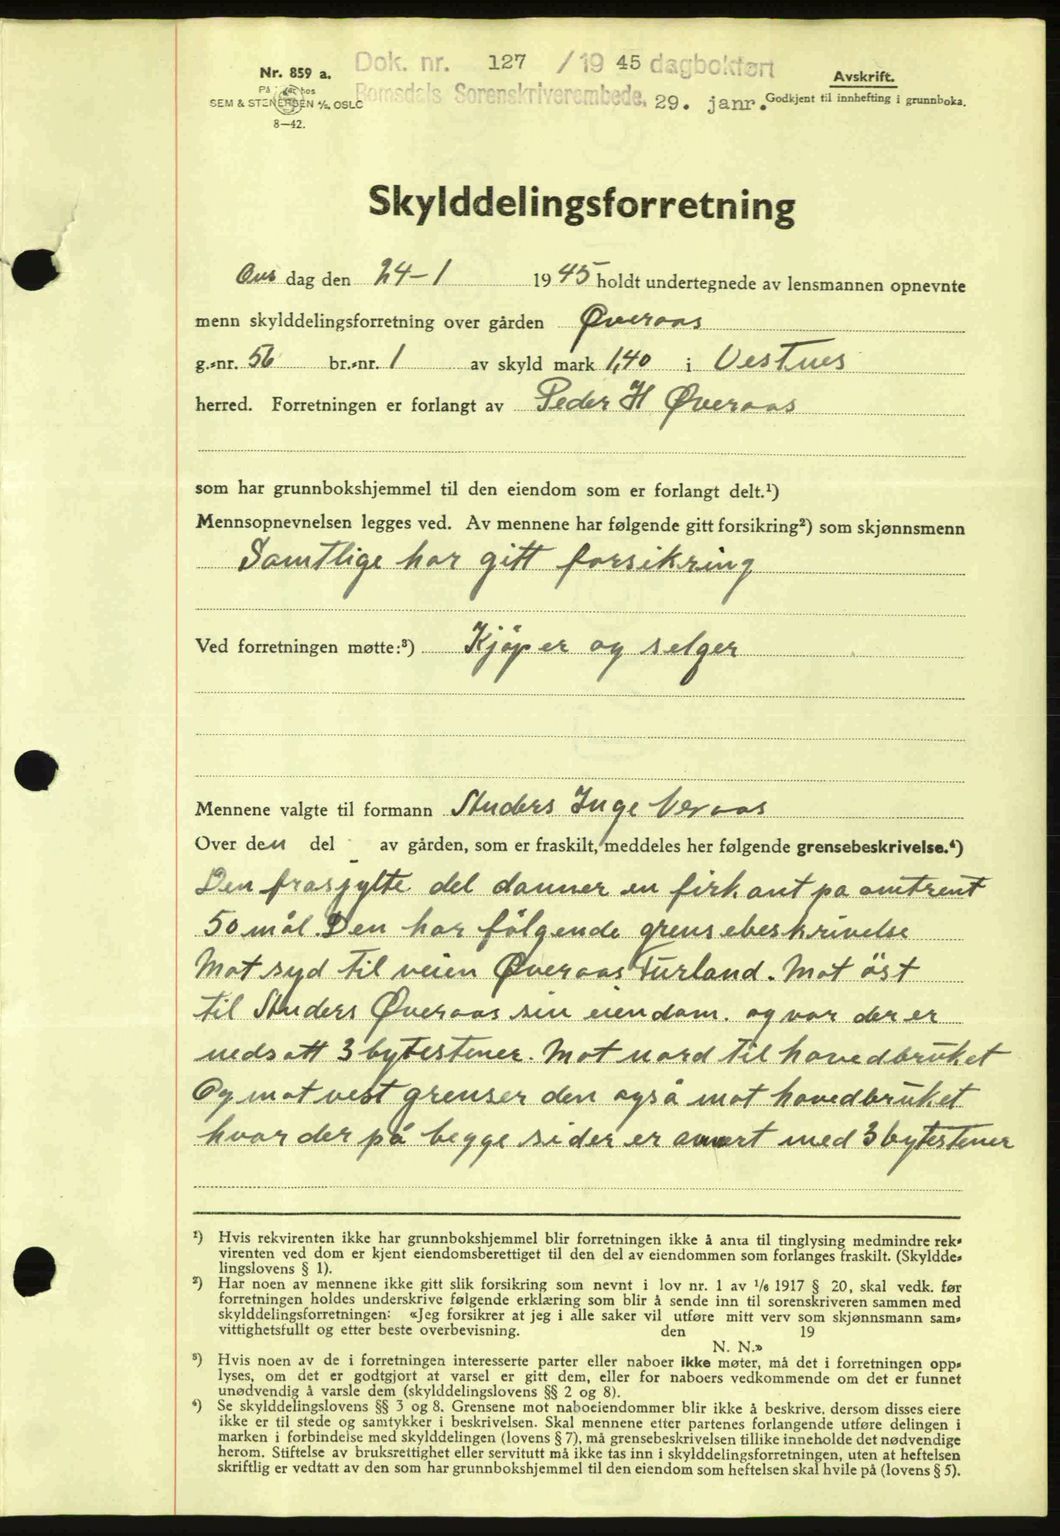 Nr. 859 a.
På lager hos
SEM & STENERSEN A/S, OSLO
8—42.
Dok. nr. 127 / 19 45 dagbokført
Romsdals Sorenskriverembede, 29. janr.
Avskrift.
Godkjent til innhefting i grunnboka.
Skylddelingsforretning
Ons dag den 24-1 19 45 holdt undertegnede av lensmannen opnevnte
menn skylddelingsforretning over gården Øveraas
g.-nr. 56 br.-nr. 1 av skyld mark 1,40 i Vestnes
herred. Forretningen er forlangt av Peder H Øveraas
som har grunnbokshjemmel til den eiendom som er forlangt delt.¹)
Mennsopnevnelsen legges ved. Av mennene har følgende gitt forsikring²) som skjønnsmenn
Samtlige har gitt forsikring
Ved forretningen møtte:³) Kjøper og selger
Mennene valgte til formann Anders Inge
Over den del av gården, som er fraskilt, meddeles her følgende grensebeskrivelse.⁴)
Den del danner en firkant på omtrent
50 mål. Den har følgende grensebeskrivelse
Mot syd til veien Øveraas Furland. Mot öst
til Anders Øveraas sin eiendom. og var der er
nedsatt 3 bytestener. Mot nord til hovedbruket
Og mot vest grenser den også mot hovedbruket
hvor der på begge sider er med 3 bytestener
¹) Hvis rekvirenten ikke har grunnbokshjemmel blir forretningen ikke å anta til tinglysing medmindre rek-
virenten ved dom er kjent eiendomsberettiget til den del av eiendommen som forlanges fraskilt. (Skyldde-
lingslovens § 1).
²) Har noen av mennene ikke gitt slik forsikring som nevnt i lov nr. 1 av ¹/₆ 1917 § 20, skal vedk. før
forretningen holdes underskrive følgende erklæring som blir å sende inn til sorenskriveren sammen med
skylddelingsforretningen: «Jeg forsikrer at jeg i alle saker vil utføre mitt verv som skjønnsmann sam-
vittighetsfullt og etter beste overbevisning. den 19
N. N.»
³) Hvis noen av de i forretningen interesserte parter eller naboer ikke møter, må det i forretningen opp-
lyses, om det er godtgjort at varsel er gitt dem, eller for naboers vedkommende om det er funnet
unødvendig å varsle dem (skylddelingslovens §§ 2 og 8).
⁴) Se skylddelingslovens §§ 3 og 8. Grensene mot naboeiendommer blir ikke å beskrive, dersom disses eiere
ikke er til stede og samtykker i beskrivelsen. Skal mennene etter partenes forlangende utføre delingen i
marken i forbindelse med skylddelingen (lovens § 7), må grensebeskrivelsen tillike inneholde det nødvendige
herom. Stiftelse av bruksrettighet eller servitutt må ikke tas inn i skylddelingsforretningen, uten at heftelsen
skriftlig er vedtatt av den som har grunnbokshjemmel til den eiendom som heftelsen skal hvile på (lovens § 5).